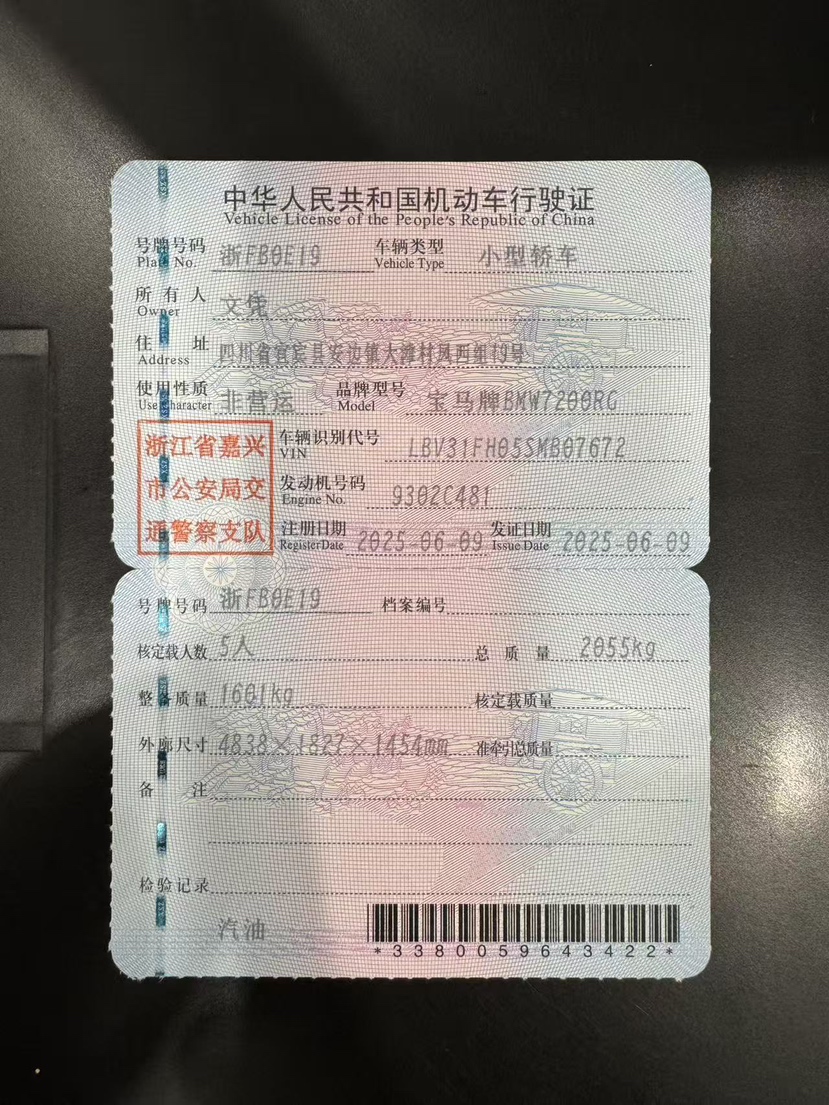 中华人民共和国机动车行驶证
Vehicle License of the People's Republic of China
号牌号码 浙FB0E19 车辆类型 小型轿车
Plate No. Vehicle Type
所有人 文凭
Owner
住址 四川省宜宾县安边镇大滩村凤西组19号
Address
使用性质 非营运 品牌型号 宝马牌BMW7200RG
Use Character Model
浙江省嘉兴
市公安局交
通警察支队
车辆识别代号 LBV31FH05SMB07672
VIN
发动机号码 9302C481
Engine No.
注册日期 2025-06-09 发证日期 2025-06-09
Register Date Issue Date
号牌号码 浙FB0E19 档案编号
核定载人数 5人 总质量 2055kg
整备质量 1601kg 核定载质量
外廓尺寸 4838×1827×1454mm 准牵引总质量
备注
检验记录
汽油
*3380059643422*